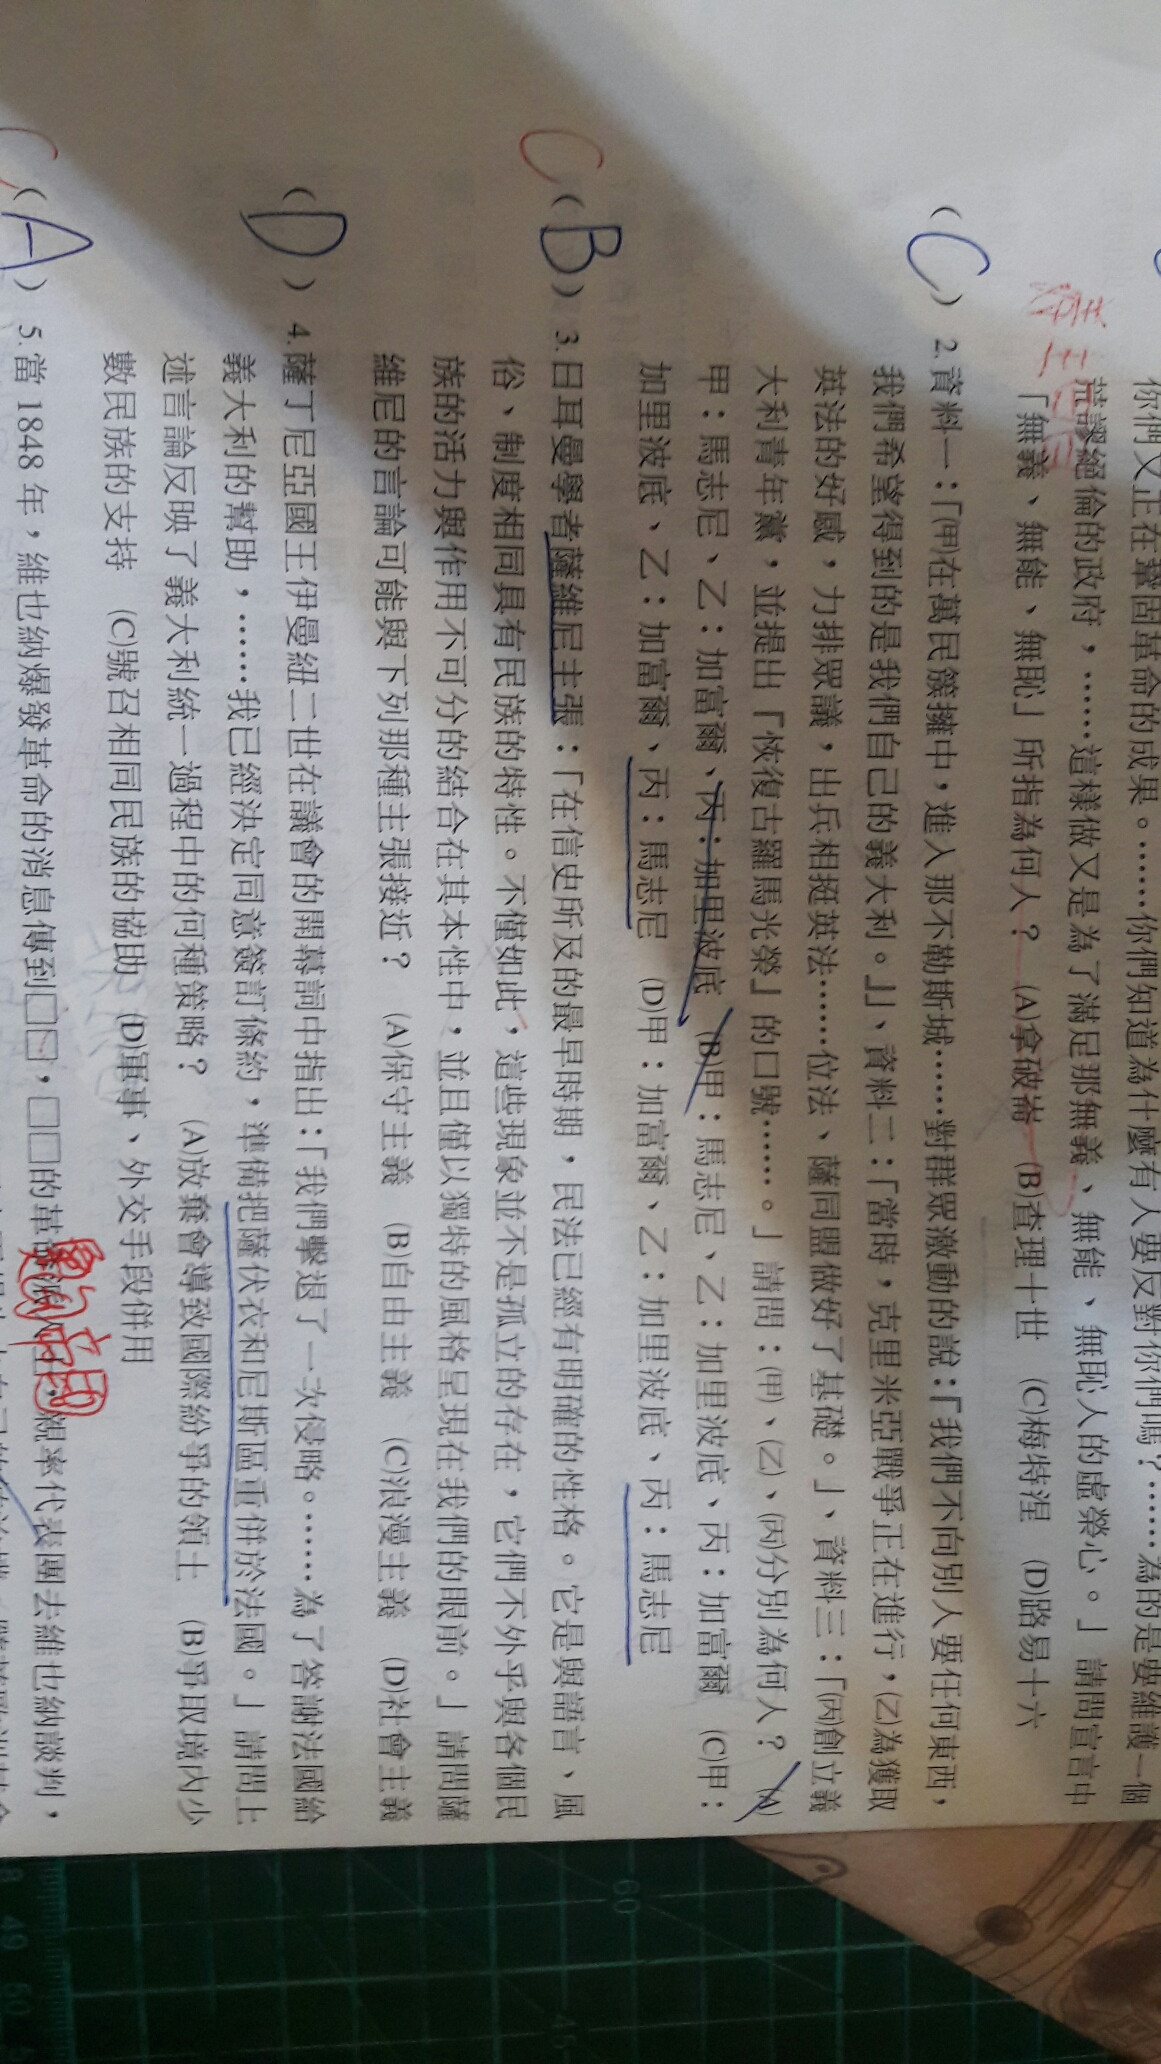 你們又正在鞏固革命的成果。……你們知道為什麼有人要反對你們嗎？……為的是要維護一個
荒謬絕倫的政府，……這樣做又是為了滿足那無義、無能、無恥人的虛榮心。」請問宣言中
「無義、無能、無恥」所指為何人？ (A)拿破崙 (B)查理十世 (C)梅特涅 (D)路易十六
(C) 2.資料一：「(甲)在萬民簇擁中，進入那不勒斯城……對群眾激動的說：「我們不向別人要任何東西，
我們希望得到的是我們自己的義大利。」」、資料二：「當時，克里米亞戰爭正在進行，(乙)為獲取
英法的好感，力排眾議，出兵相挺英法……位法、薩同盟做好了基礎。」、資料三：「(丙)創立義
大利青年黨，並提出「恢復古羅馬光榮」的口號……。」請問：(甲)、(乙)、(丙)分別為何人？ (A)
甲：馬志尼、乙：加富爾、丙：加里波底 (B)甲：馬志尼、乙：加里波底、丙：加富爾 (C)甲：
加里波底、乙：加富爾、丙：馬志尼 (D)甲：加富爾、乙：加里波底、丙：馬志尼
C (B) 3.日耳曼學者薩維尼主張：「在信史所及的最早時期，民法已經有明確的性格。它是與語言、風
俗、制度相同具有民族的特性。不僅如此，這些現象並不是孤立的存在，它們不外乎與各個民
族的活力與作用不可分的結合在其本性中，並且僅以獨特的風格呈現在我們的眼前。」請問薩
維尼的言論可能與下列那種主張接近？ (A)保守主義 (B)自由主義 (C)浪漫主義 (D)社會主義
(D) 4.薩丁尼亞國王伊曼紐二世在議會的開幕詞中指出：「我們擊退了一次侵略。……為了答謝法國給
義大利的幫助，……我已經決定同意簽訂條約，準備把薩伏衣和尼斯區重併於法國。」請問上
述言論反映了義大利統一過程中的何種策略？ (A)放棄會導致國際紛爭的領土 (B)爭取境內少
數民族的支持 (C)號召相同民族的協助 (D)軍事、外交手段併用
C (A) 5.當 1848 年，維也納爆發革命的消息傳到□□，□□的革命派人士，親率代表團去維也納談判，